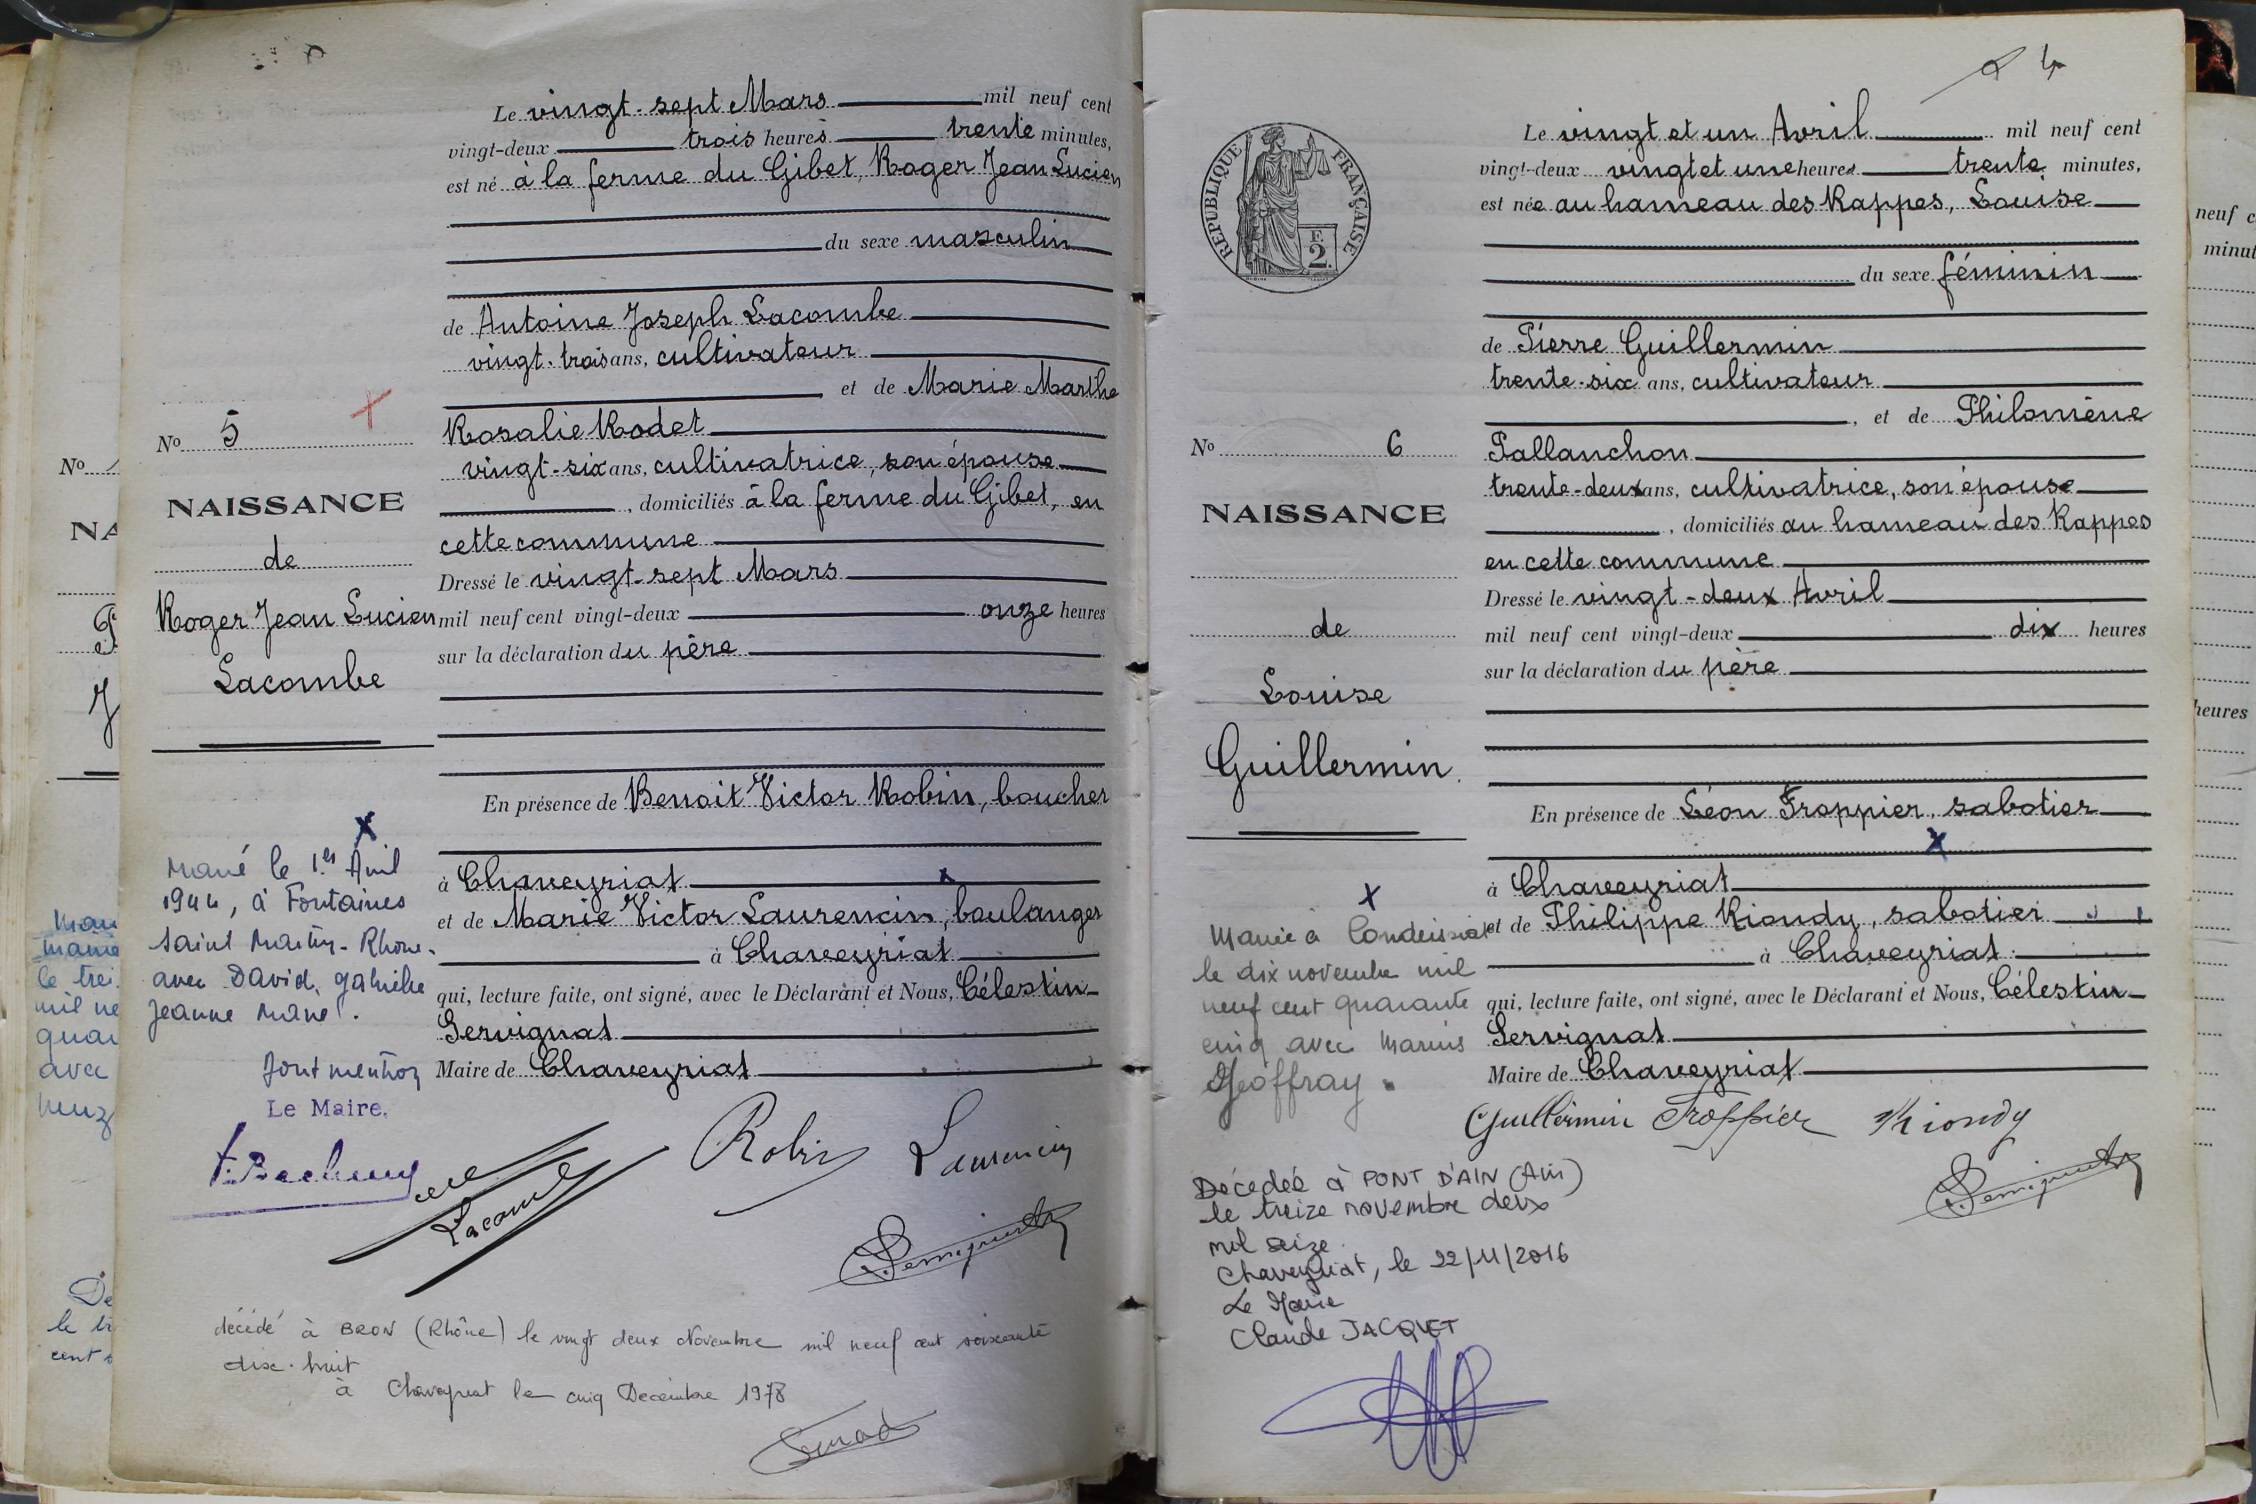 Le vingt-sept Mars mil neuf cent
vingt-deux trois heures trente minutes,
est né à la ferme du Gibet, Roger Jean Lucien
du sexe masculin
de Antoine Joseph Lacombe
vingt-trois ans, cultivateur
et de Marie Marthe
Rosalie Rodet
vingt-six ans, cultivatrice, son épouse
, domiciliés à la ferme du Gibet, en
cette commune
Dressé le vingt-sept Mars
mil neuf cent vingt-deux onze heures
sur la déclaration du père
En présence de Benoit Victor Robin, boucher
à Chaveyriat
et de Marie Victor Laurencin, boulanger
à Chaveyriat
qui, lecture faite, ont signé, avec le Déclarant et Nous, Célestin
Servignat
Maire de Chaveyriat
No 5
NAISSANCE
de
Roger Jean Lucien
Lacombe
Marié le 1er Avril
1944, à Fontaines
Saint Martin-Rhône-
avec David, Gabrielle
Jeanne Marie.
Dont mention
Le Maire,
Lacombe
Robin
Laurencin
décédé à BRON (Rhône) le vingt deux Novembre mil neuf cent soixante
dix-huit
à Chaveyriat le cinq Décembre 1978
4
RÉPUBLIQUE FRANÇAISE
F.
2.
Le vingt et un Avril mil neuf cent
vingt-deux vingt et une heures trente minutes,
est née au hameau des Rappes, Louise
du sexe féminin
de Pierre Guillermin
trente-six ans, cultivateur
, et de Philomène
Pallanchon
trente-deux ans, cultivatrice, son épouse
, domiciliés au hameau des Rappes
en cette commune
Dressé le vingt-deux Avril
mil neuf cent vingt-deux dix heures
sur la déclaration du père
En présence de Léon Froppier, sabotier
à Chaveyriat
et de Philippe Riondy, sabotier
à Chaveyriat
qui, lecture faite, ont signé, avec le Déclarant et Nous, Célestin
Servignat
Maire de Chaveyriat
No 6
NAISSANCE
de
Louise
Guillermin.
Mariée à Condeissiat
le dix novembre mil
neuf cent quarante
cinq avec Marius
Geoffray.
Guillermin Froppier Riondy
Décédée à PONT D'AIN (Ain)
le treize novembre deux
mil seize.
Chaveyriat, le 22/11/2016
Le Maire
Claude JACQUET
No
NA
le trei
mil ne
quar
avec
De
cent
neuf c
minut
heures